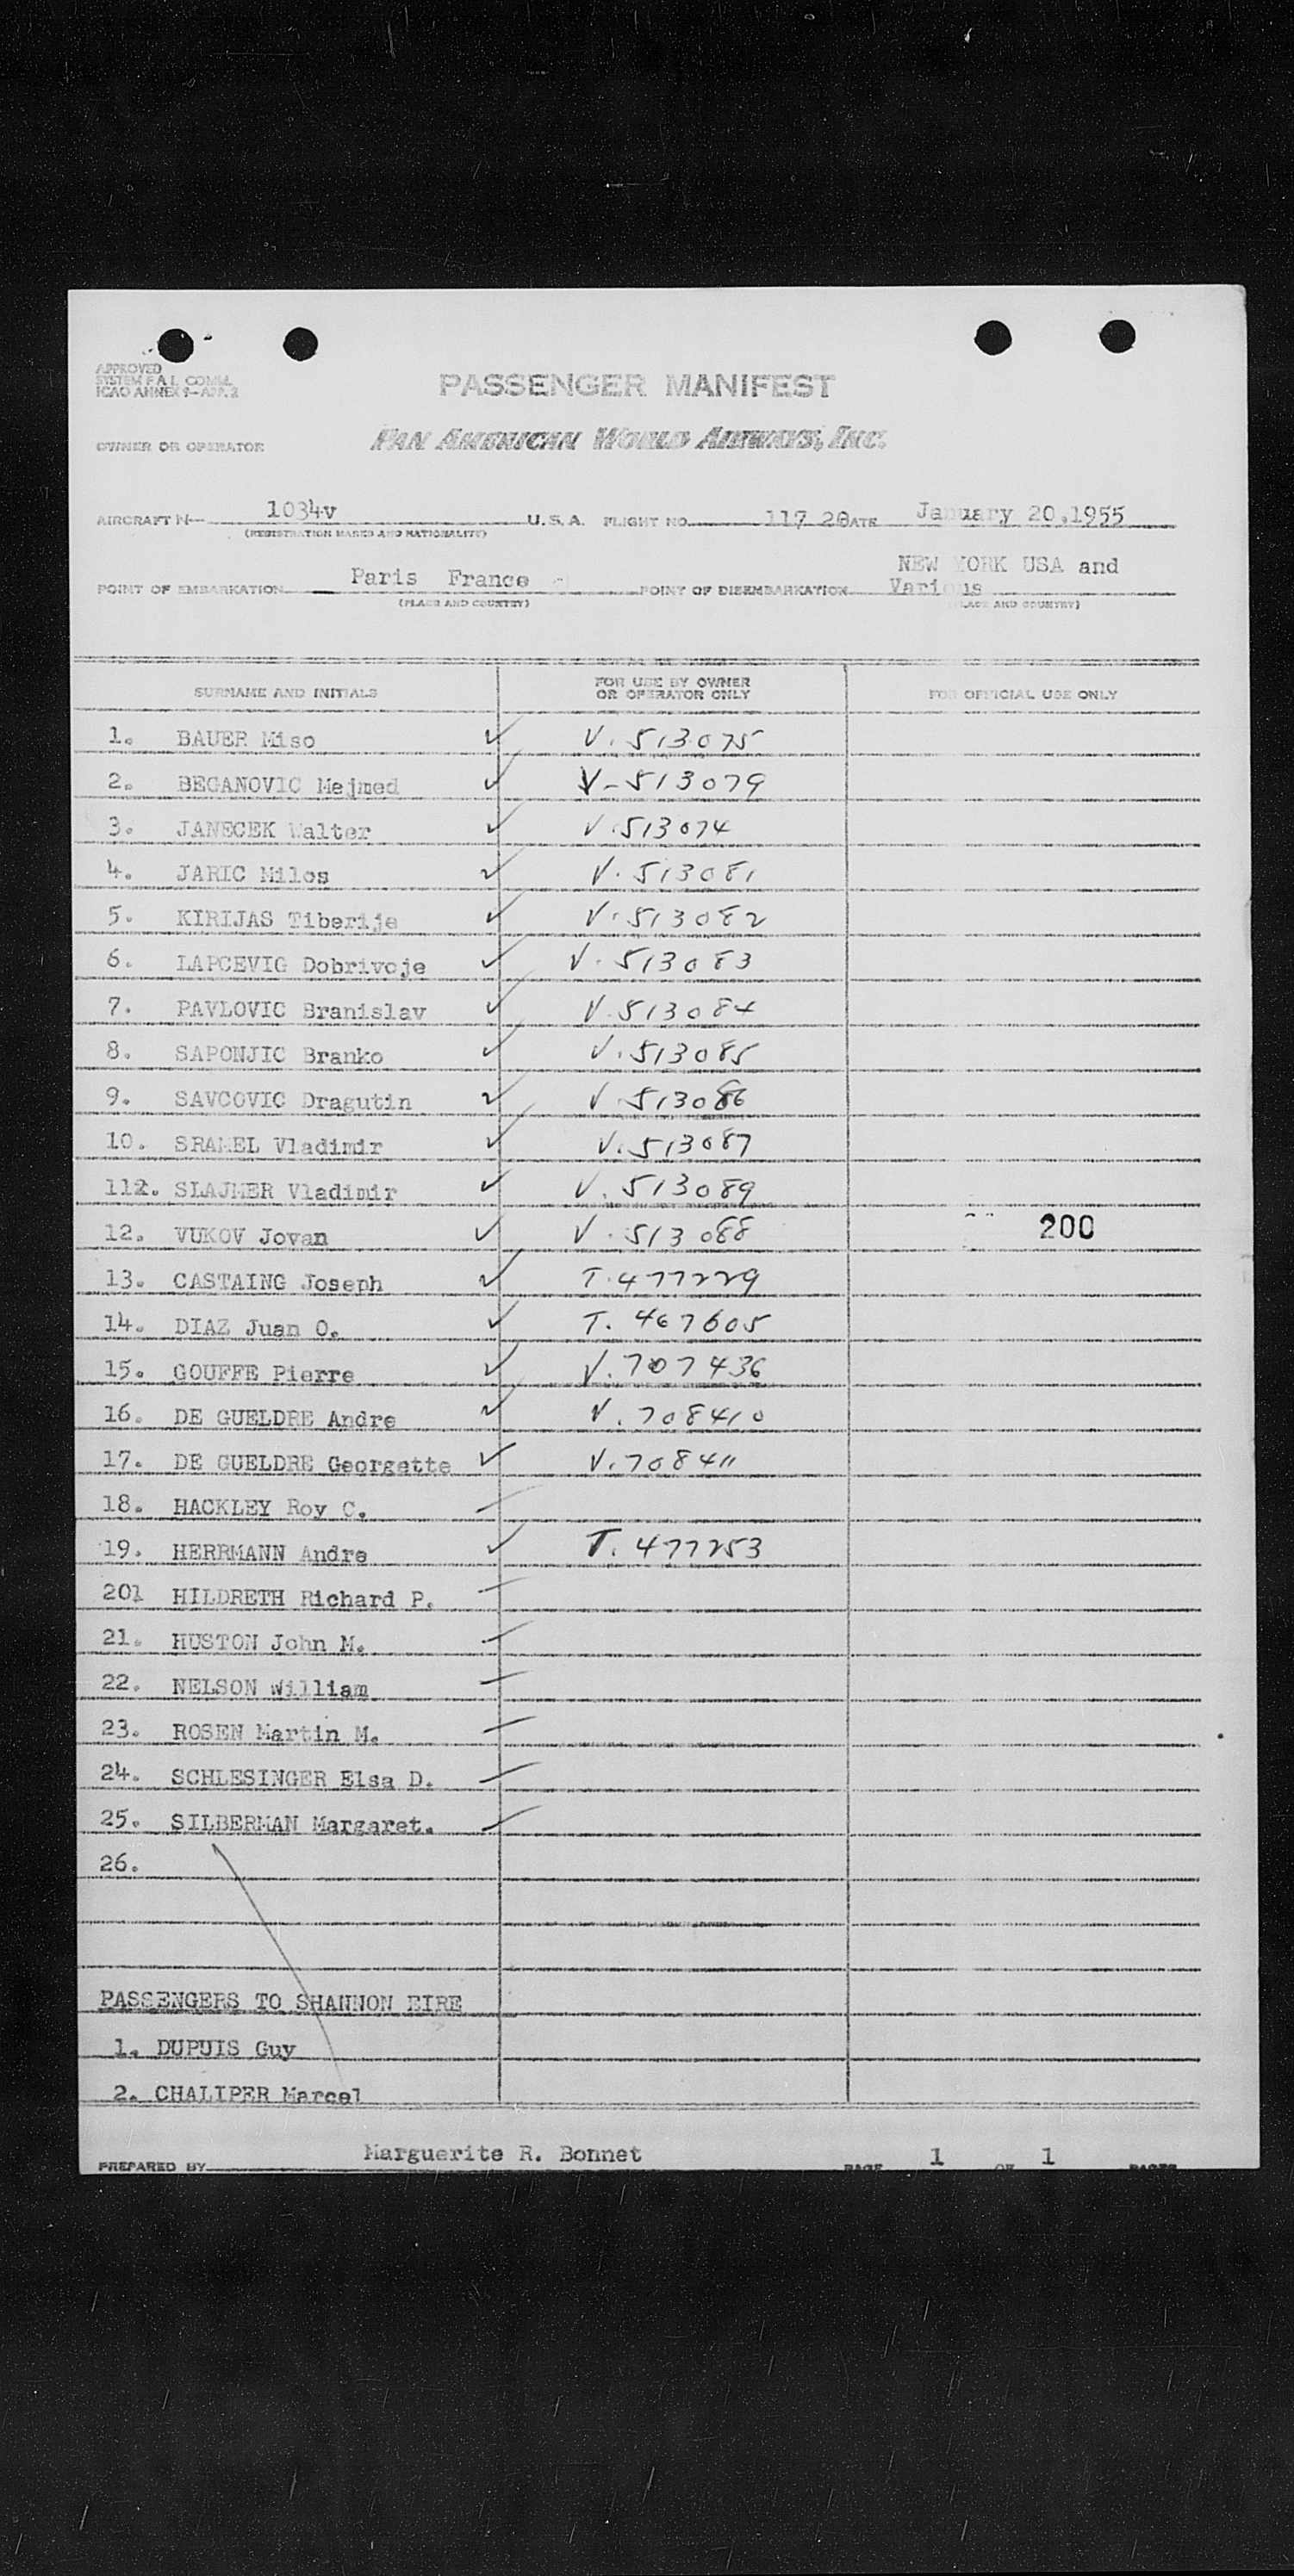 APPROVED
SYSTEM F A L COMM.
ICAO ANNEX 9-APP. 2
PASSENGER MANIFEST
OWNER OR OPERATOR PAN AMERICAN WORLD AIRWAYS, INC.
AIRCRAFT N 1034v U.S.A. FLIGHT NO. 117 20 DATE January 20,1955
(REGISTRATION MARKS AND NATIONALITY)
NEW YORK USA and
POINT OF EMBARKATION Paris France POINT OF DISEMBARKATION Various
(PLACE AND COUNTRY) (PLACE AND COUNTRY)
SURNAME AND INITIALS FOR USE BY OWNER OR OPERATOR ONLY FOR OFFICIAL USE ONLY
1. BAUER Miso ✓ V. 513075
2. BEGANOVIC Mejmed ✓ V-513079
3. JANECEK Walter ✓ V.513074
4. JARIC Milos ✓ V. 513081
5. KIRIJAS Tiberije ✓ V.513082
6. LAPCEVIG Dobrivoje ✓ V. 513083
7. PAVLOVIC Branislav ✓ V.513084
8. SAPONJIC Branko ✓ V.513085
9. SAVCOVIC Dragutin ✓ V 513086
10. SRAMEL Vladimir ✓ V.513087
112. SLAJMER Vladimir ✓ V.513089
12. VUKOV Jovan ✓ V.513088 200
13. CASTAING Joseph ✓ T.477229
14. DIAZ Juan O. ✓ T. 467605
15. GOUFFE Pierre ✓ V.707436
16. DE GUELDRE Andre ✓ V.708410
17. DE GUELDRE Georgette ✓ V.708411
18. HACKLEY Roy C.
19. HERRMANN Andre ✓ T. 477253
201 HILDRETH Richard P.
21. HUSTON John M.
22. NELSON William
23. ROSEN Martin M.
24. SCHLESINGER Elsa D.
25. SILBERMAN Margaret.
26.
PASSENGERS TO SHANNON EIRE
1. DUPUIS Guy
2. CHALIPER Marcel
PREPARED BY Marguerite R. Bonnet PAGE 1 OF 1 PAGES